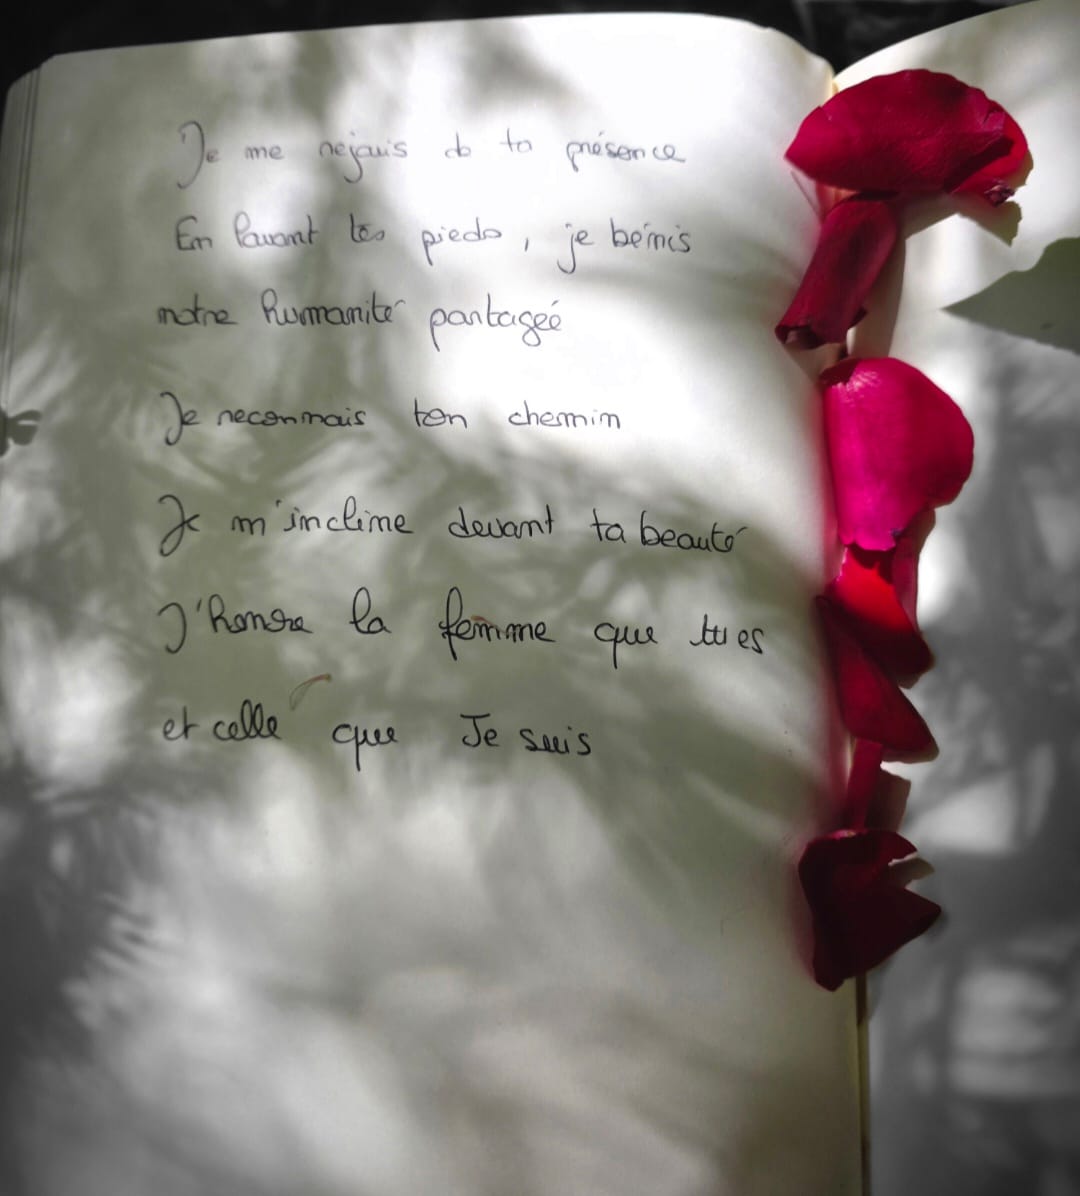 Je me rejouis de ta présence
En lavant tes pieds, je bénis
notre humanité partagée
Je reconnais ton chemin
Je m'incline devant ta beauté
J'honore la femme que tu es
et celle que Je suis